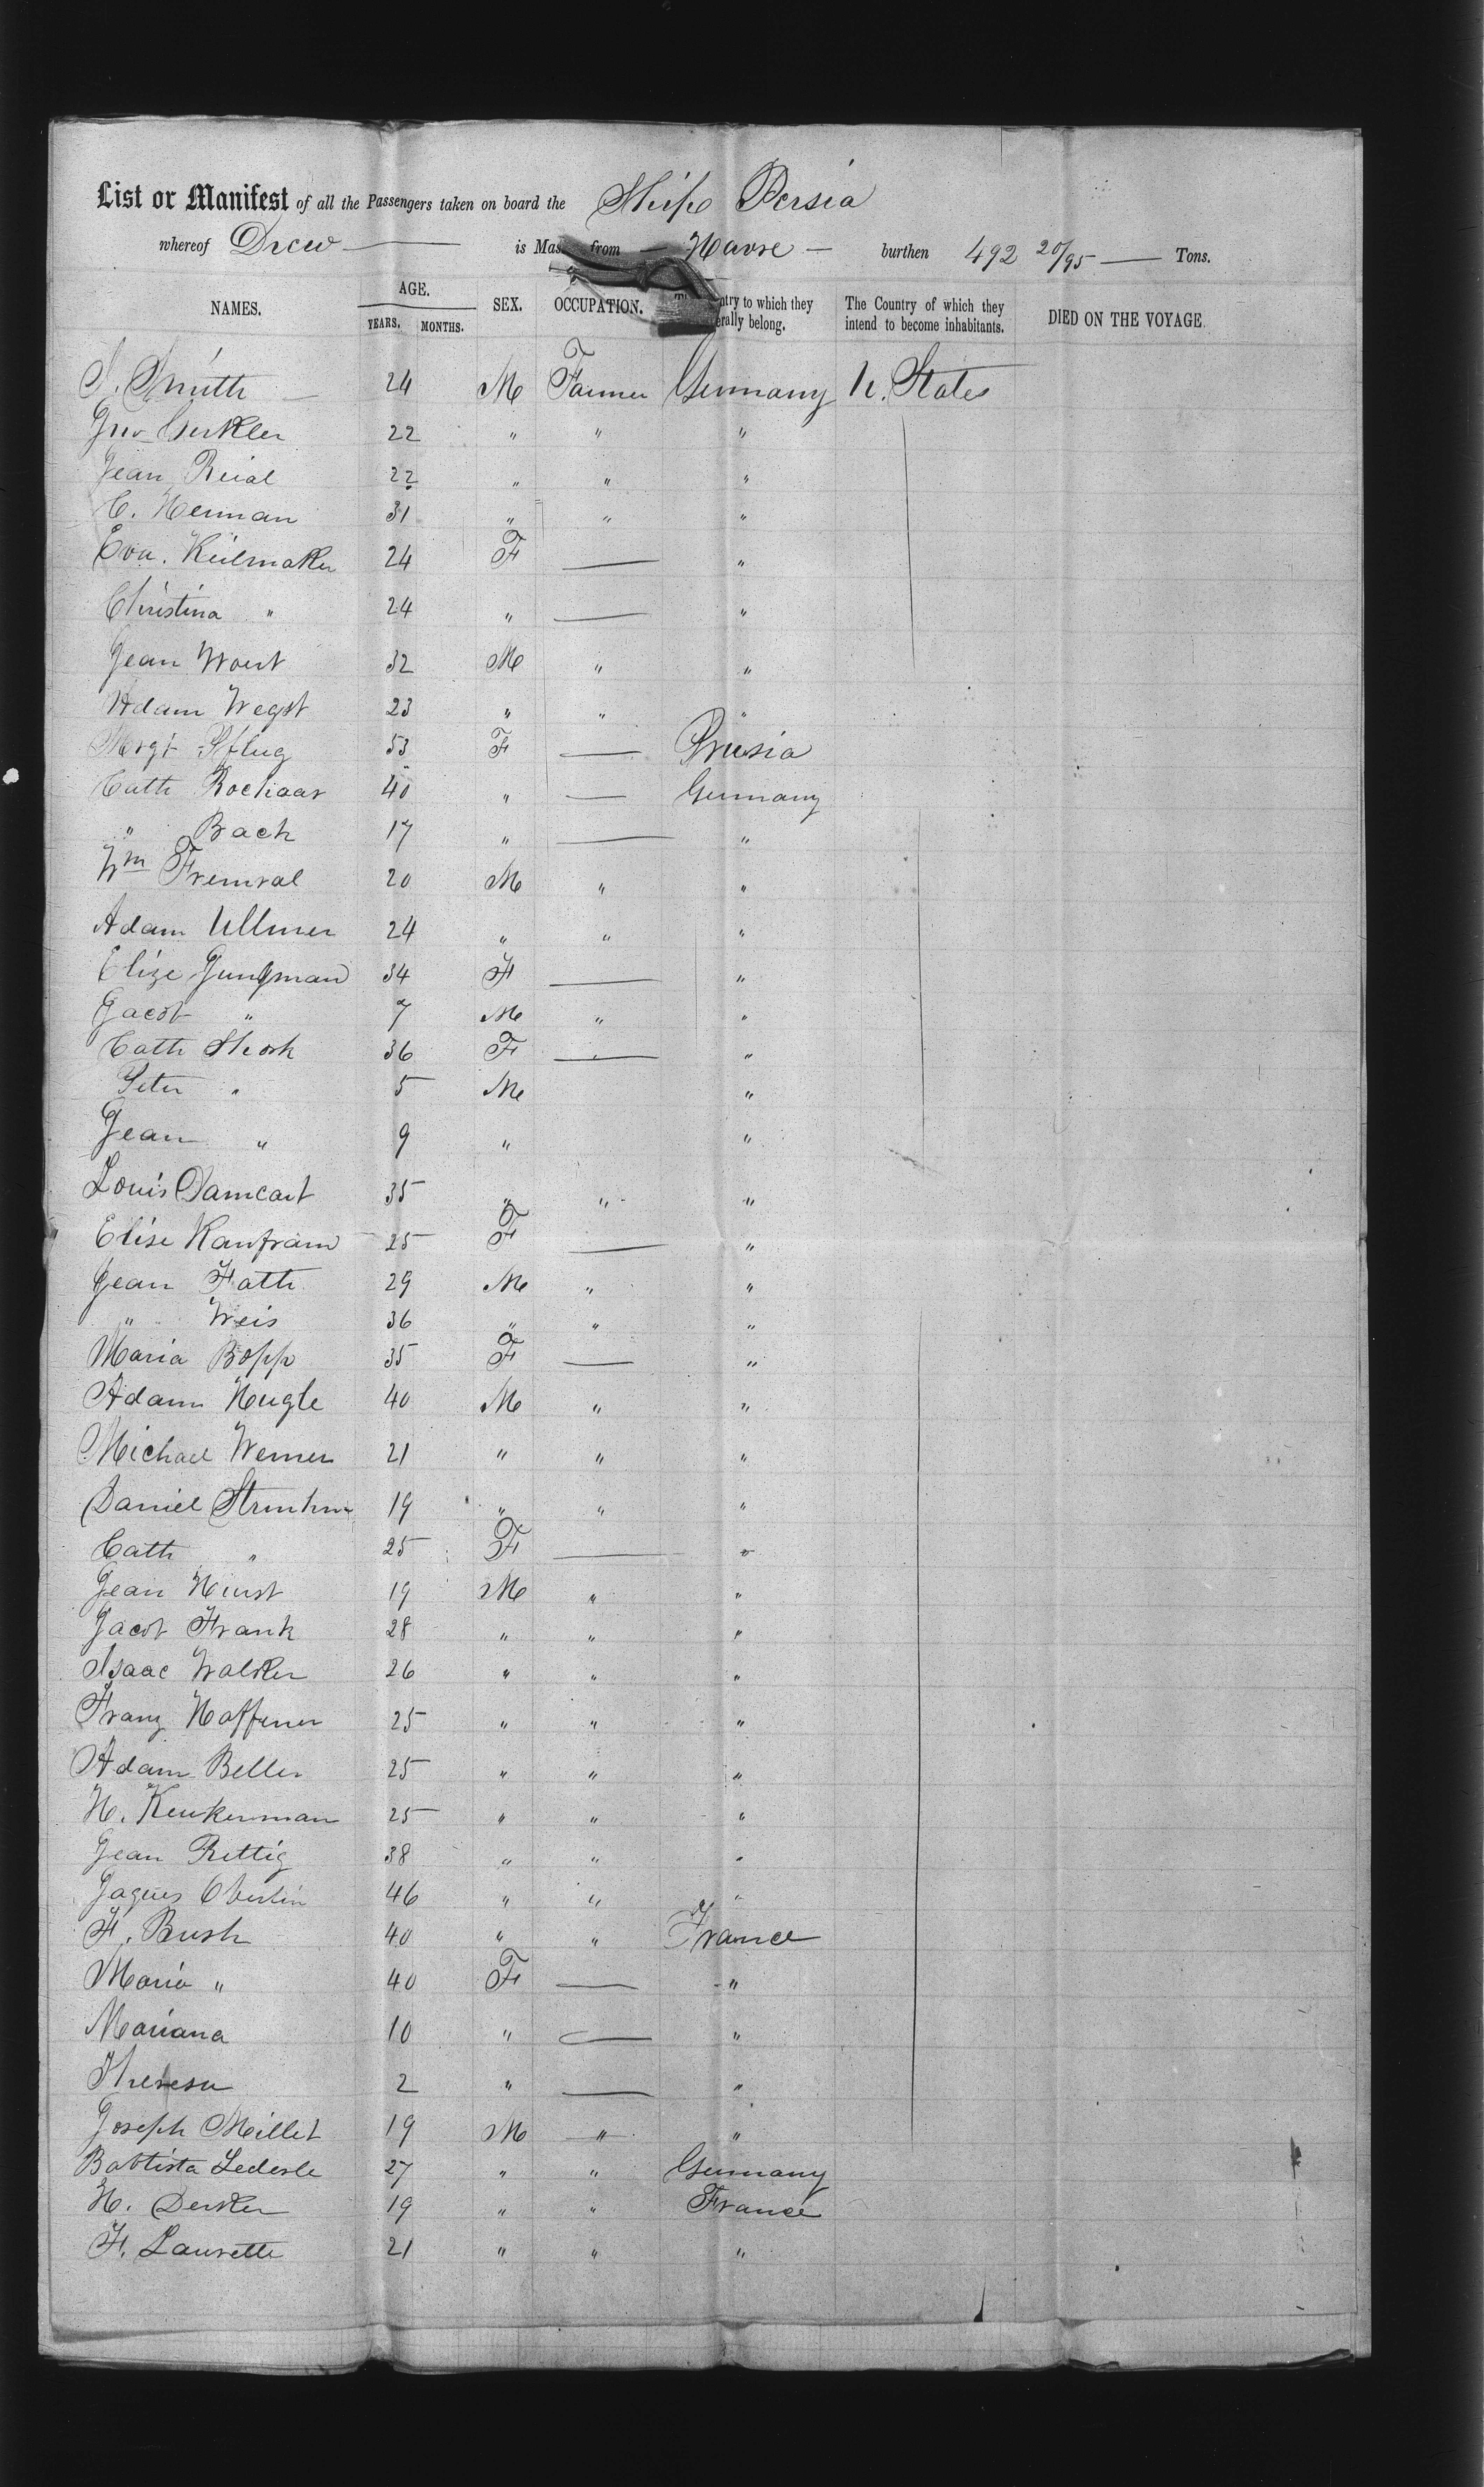 List or Manifest of all the Passengers taken on board the Ship Persia
whereof Drew is Mas from Havre burthen 492 20/95 Tons.
NAMES. AGE. YEARS. MONTHS. SEX. OCCUPATION. ntry to which they erally belong. The Country of which they intend to become inhabitants. DIED ON THE VOYAGE.
S. Smith 24 M Farmer Germany U. States
22 " " "
Jean Reial 22 " " "
C. Herman 31 " " "
Eva. Keilmaker 24 F — "
Christina " 24 " — "
Jean 32 M " "
Adam Wegst 23 " " "
Mrgt Pflug 53 F — Prusia
Cath Rochaar 40 " — Germany
" Bach 17 " — "
Wm Fremral 20 M " "
Adam Ullmer 24 " " "
Elize Jungman 34 F — "
Jacob " 7 M " "
Cath Shork 36 F — "
Peter " 5 M "
Jean " 9 " "
Louis Damcart 35 " " "
Elise 25 F — "
Jean Fath 29 M " "
" Weis 36 " " "
Maria Bopp 35 F — "
Adam Hugle 40 M " "
Michael Werner 21 " " "
Daniel 19 " " "
Cath " 25 F — "
Jean Hurst 19 M " "
Jacob Frank 28 " " "
Isaac Walker 26 " " "
Franz Haffner 25 " " "
Adam Beller 25 " " "
H. Keukerman 25 " " "
Jean Rettig 38 " " "
Jaques Oberlin 46 " " "
F. Bush 40 " " France
Maria " 40 F — "
Mariana 10 " — "
Theresa 2 " — "
Joseph Millet 19 M " "
Babtista Lederle 27 " " Germany
H. Derker 19 " " France
F. Laurette 21 " " "